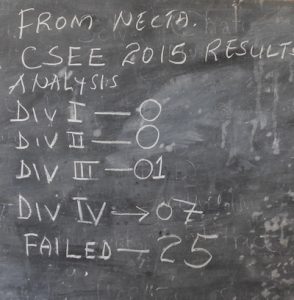 FROM NECTA.
CSEE 2015 RESULTS
ANALYSIS
DIV I — 0
DIV II — 0
DIV III — 01
DIV IV → 07
FAILED — 25